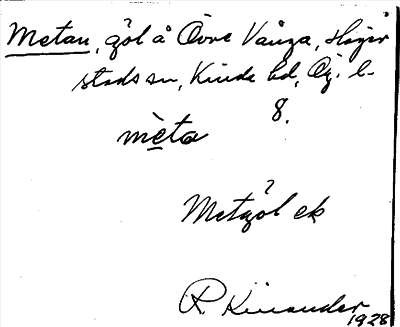 Metan, göl å Övre Vånga, Häger
stads sn, Kinda hd, Ög. l.
8.
mèta
?
Metgöl ek
R Kinander
1928